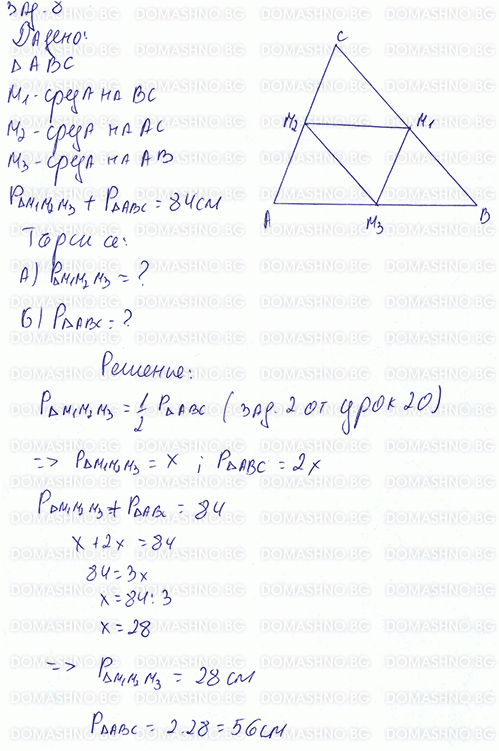 Зад. 8
Дадено:
ΔABC
M₁ - среда на BC
M₂ - среда на AC
M₃ - среда на AB
PΔM₁M₂M₃ + PΔABC = 84 см
Търси се:
А) PΔM₁M₂M₃ = ?
Б) PΔABC = ?
C
M₂ M₁
A M₃ B
Решение:
PΔM₁M₂M₃ = 1/2 PΔABC (зад. 2 от урок 20)
=> PΔM₁M₂M₃ = x ; PΔABC = 2x
PΔM₁M₂M₃ + PΔABC = 84
x + 2x = 84
84 = 3x
x = 84 : 3
x = 28
=> PΔM₁M₂M₃ = 28 см
PΔABC = 2.28 = 56 см
DOMASHNO.BG